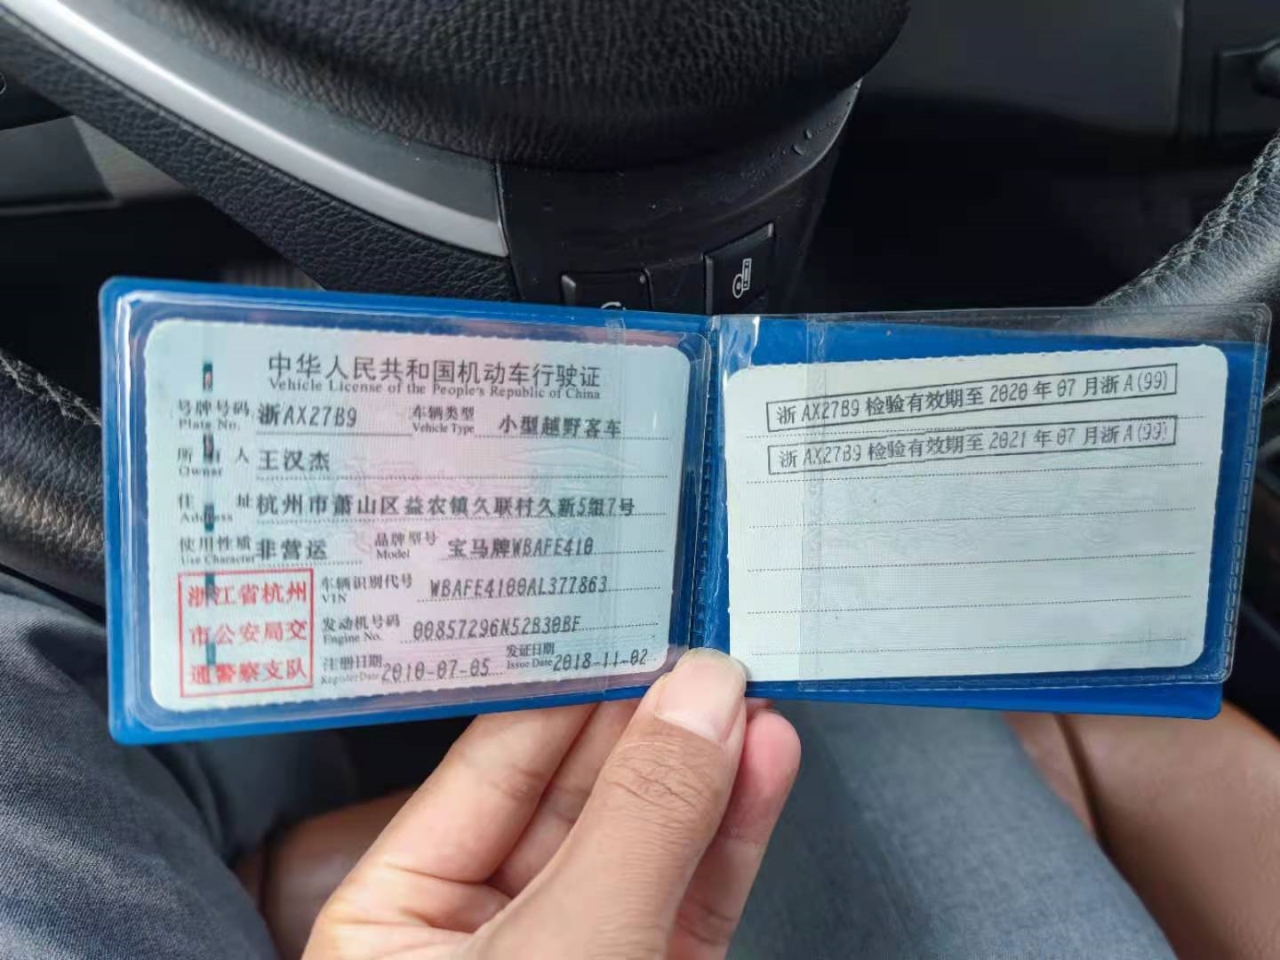 中华人民共和国机动车行驶证
Vehicle License of the People's Republic of China
号牌号码 浙AX27B9 车辆类型 小型越野客车
Plate No. Vehicle Type
所 人 王汉杰
Owner
住 址 杭州市萧山区益农镇久联村久新5组7号
Address
使用性质 非营运 品牌型号 宝马牌WBAFE410
Use Character Model
浙江省杭州
市公安局交
通警察支队
车辆识别代号 WBAFE4100AL377863
VIN
发动机号码 00857296N52B30BF
Engine No.
注册日期 2010-07-05 发证日期 2018-11-02
Register Date Issue Date
浙AX27B9 检验有效期至 2020 年 07 月浙 A(99)
浙AX27B9 检验有效期至 2021 年 07 月浙 A(99)